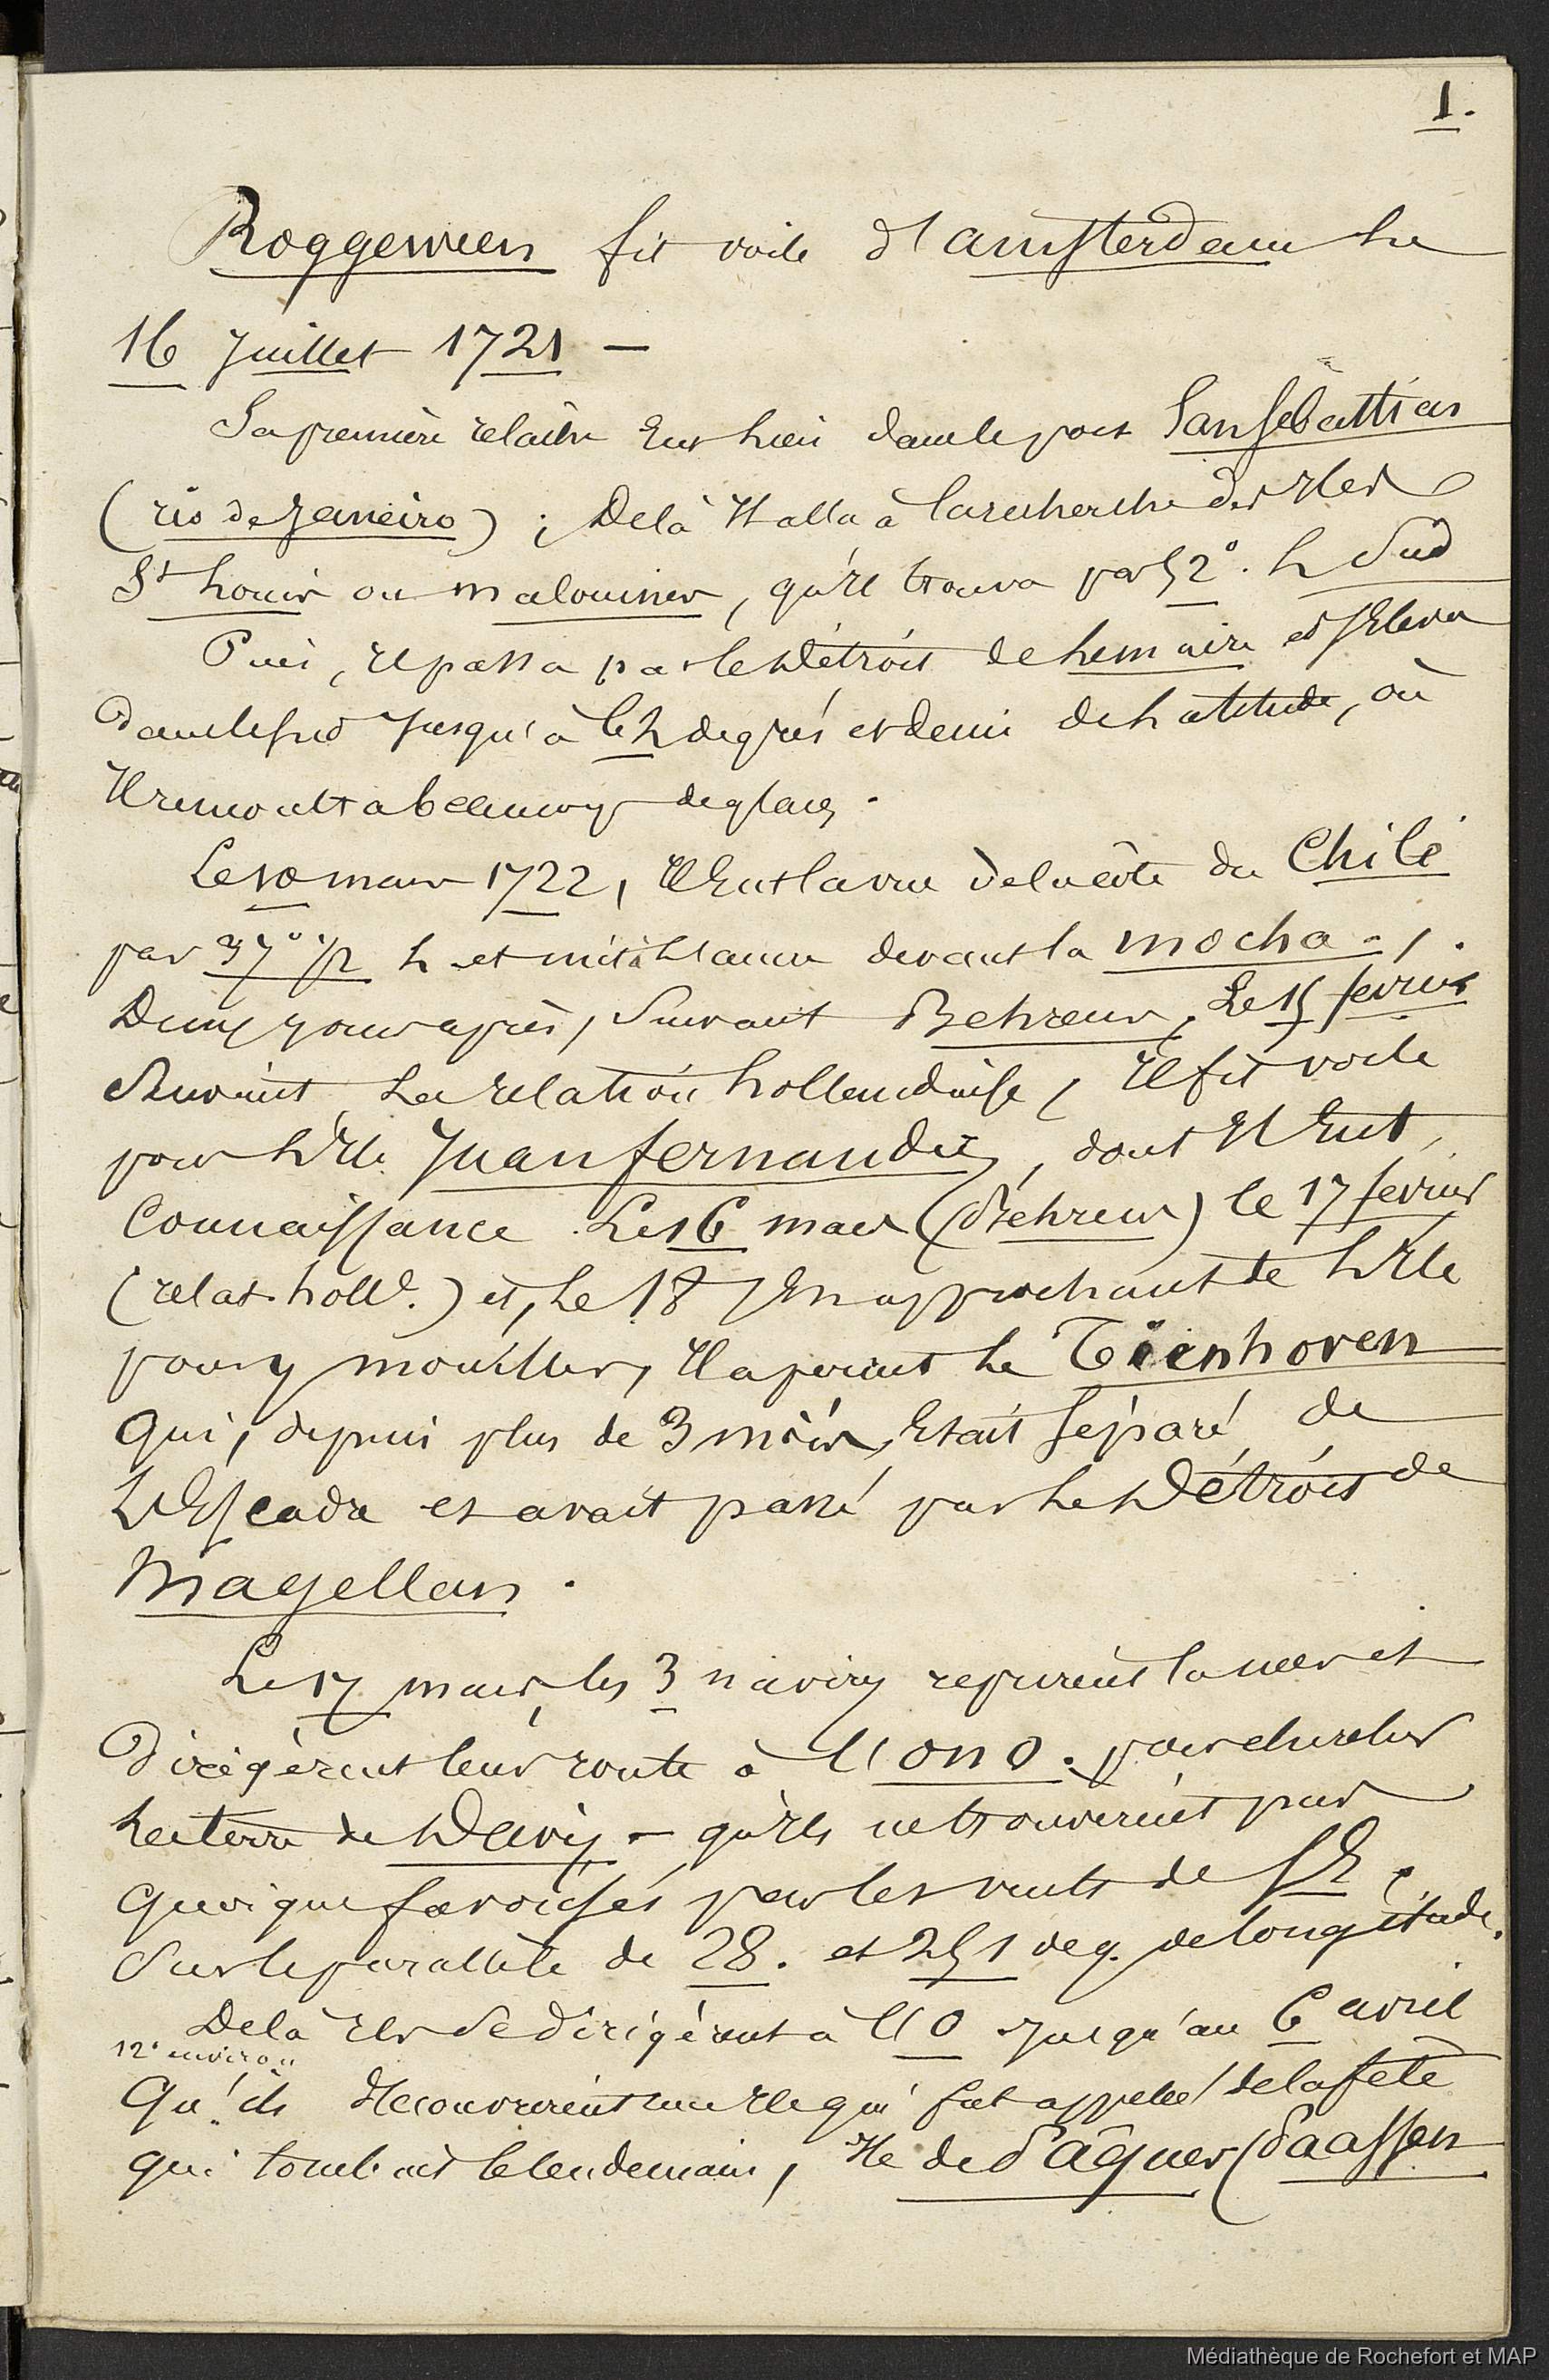 1.
Roggeween fit voile d'amsterdam Le
16 Juillet 1721 —
Sa première relâche Eut lieu dans le port San Sebastian
(rio de Janeiro) ; De là Il alla à la recherche des Iles
St Louis ou malouines, qu'Il trouva par 52°. L Sud
Puis, Il passa par le Détroit de Lemaire et s'Eleva
dans le sud Jusqu'à 62 degrés et demi de Latitude, où
Il rencontra beaucoup de glaces.
Le 10 mars 1722, Il Eut la vue de la côte du Chili
par 37° 1/2 L et mit à l'ancre devant la mocha - .
Deux Jours après, Suivant Behrens, Le 15 février
Suivant La relation hollandaise, Il fit voile
pour L'Ile Juan fernandez, dont Il Eut
Connaissance Le 16 mars (Behrens) le 17 février
(relat. holl.e) et, Le 18, En approchant de L'Ile
pour y mouiller, Il aperçut Le Tienhoven
Qui, depuis plus de 3 mois, Etait Séparé de
L'Escadre et avait passé par Le Détroit de
Magellan.
Le 17 mars, les 3 navires reprirent la mer et
Dirigèrent leur route à l'ONO. pour chercher
La terre de Davis - qu'Ils ne trouvèrent pas
Quoique favorisés par les vents de SE.
Sur le parallèle de 28. et 251 deg. de longitude.
De là Ils Se dirigèrent à l'O Jusqu'au 6 avril
12° environ
Qu'ils découvrirent une Ile qui fut appelée de la fête
qui tombait le lendemain, Ile de Pâques (Paassen
Médiathèque de Rochefort et MAP